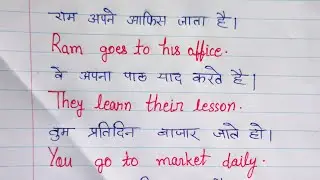 राम अपने आफिस जाता है।
Ram goes to his office.
वे अपना पाठ याद करते है।
They learn their lesson.
तुम प्रतिदिन बाजार जाते हो।
You go to market daily.